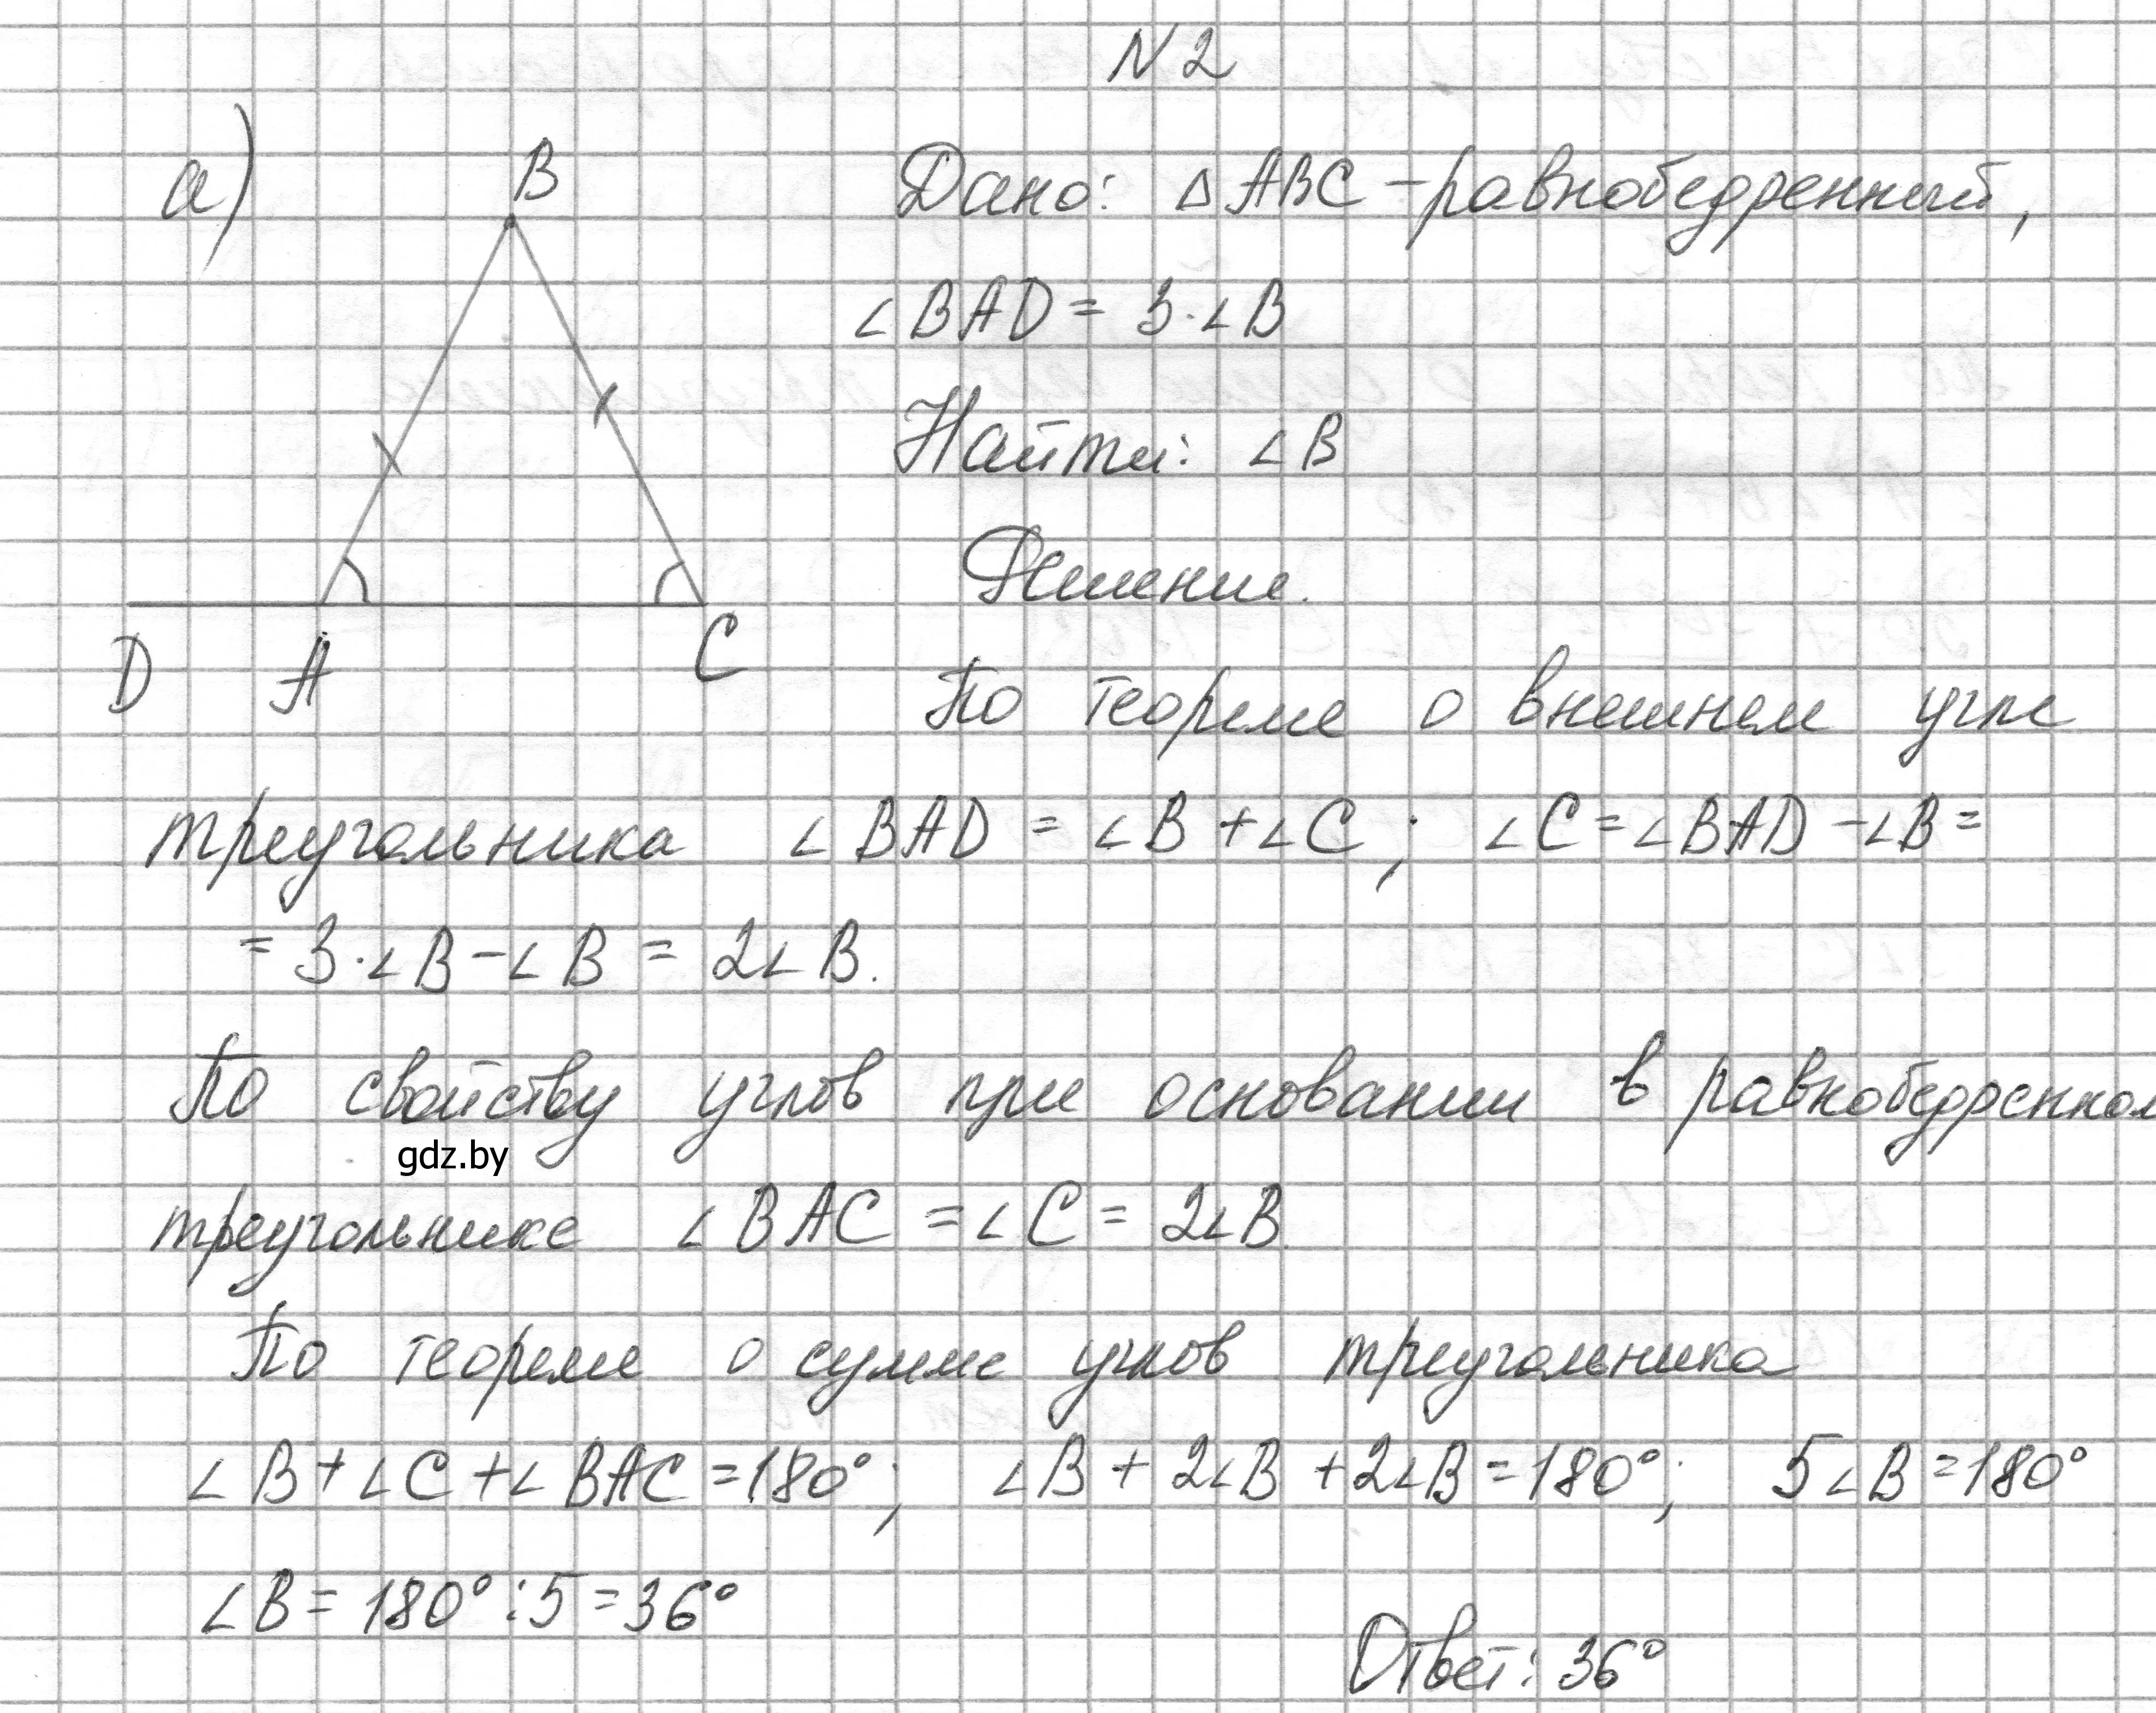 N 2
а)
B
D A C
Дано: △ ABC - равнобедренный,
∠BAD = 3·∠B
Найти: ∠B
Решение.
По теореме о внешнем угле
треугольника ∠BAD = ∠B + ∠C ; ∠C = ∠BAD - ∠B =
= 3·∠B - ∠B = 2∠B.
По свойству углов при основании в равнобедренном
gdz.by
треугольнике ∠BAC = ∠C = 2∠B.
По теореме о сумме углов треугольника
∠B + ∠C + ∠BAC = 180°; ∠B + 2∠B + 2∠B = 180°; 5∠B = 180°
∠B = 180° : 5 = 36°
Ответ: 36°